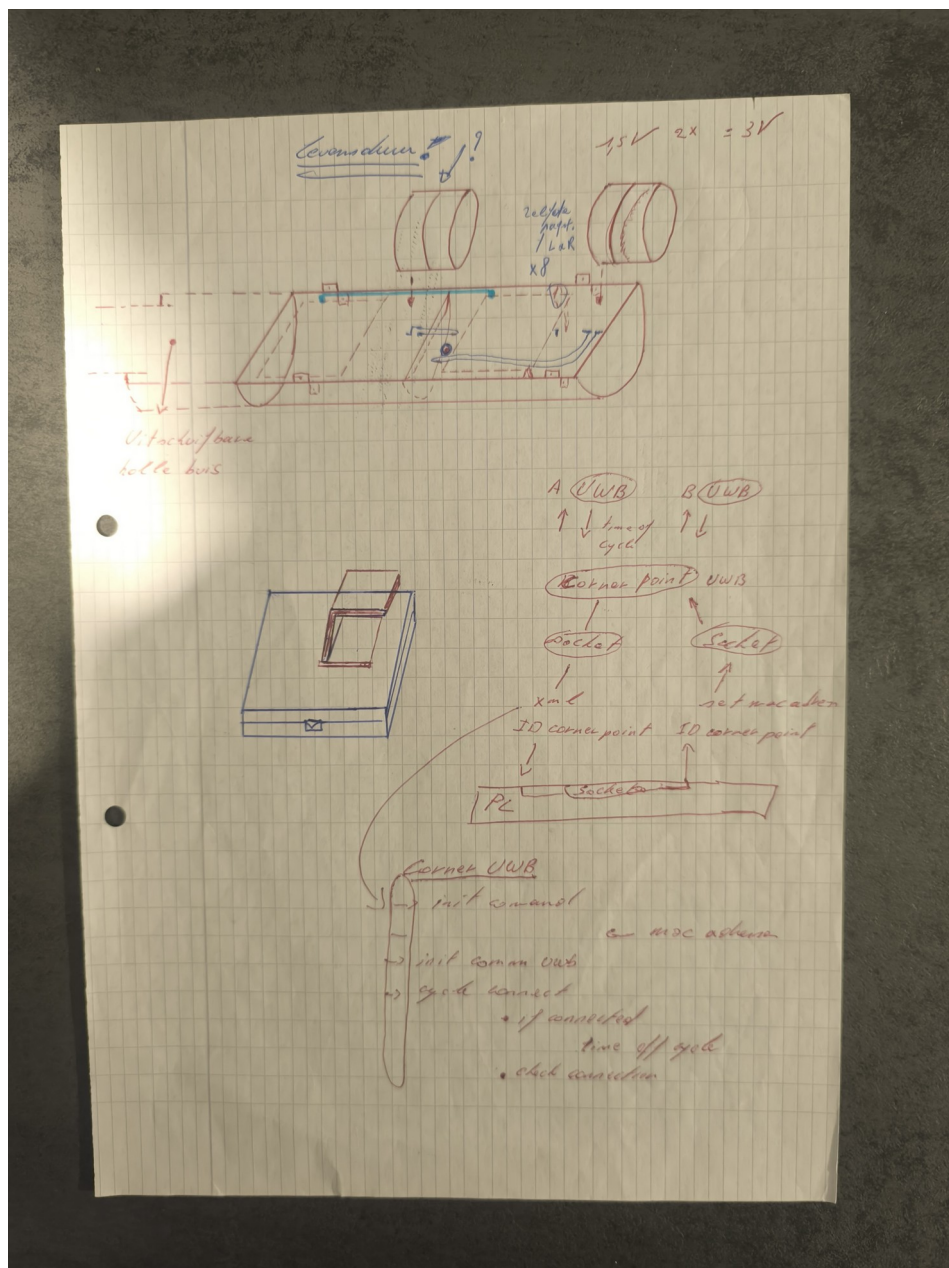 Levensduur? ?
1,5V 2x = 3V
/ L & R
x8
Uitschuifbare
holle buis
A UWB B UWB
time of
cycle
Corner point UWB
Socket Socket
xml set mac adres
ID corner point ID corner point
PC Sockets
Corner UWB
→ init comand
mac adressen
→ init comm UWB
→ cycle connect
• if connected
time off cycle
• check connection